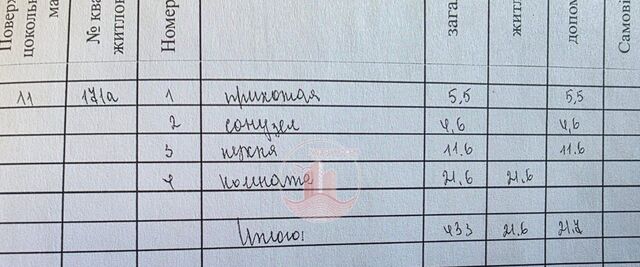 Повер цокольн ма № ква житлов Номер зага житл допом Самові
11 171а 1 прихожая 5,5 5,5
2 санузел 4,6 4,6
3 кухня 11.6 11.6
4 комната 21,6 21.6
Итого: 433 21.6 21.7